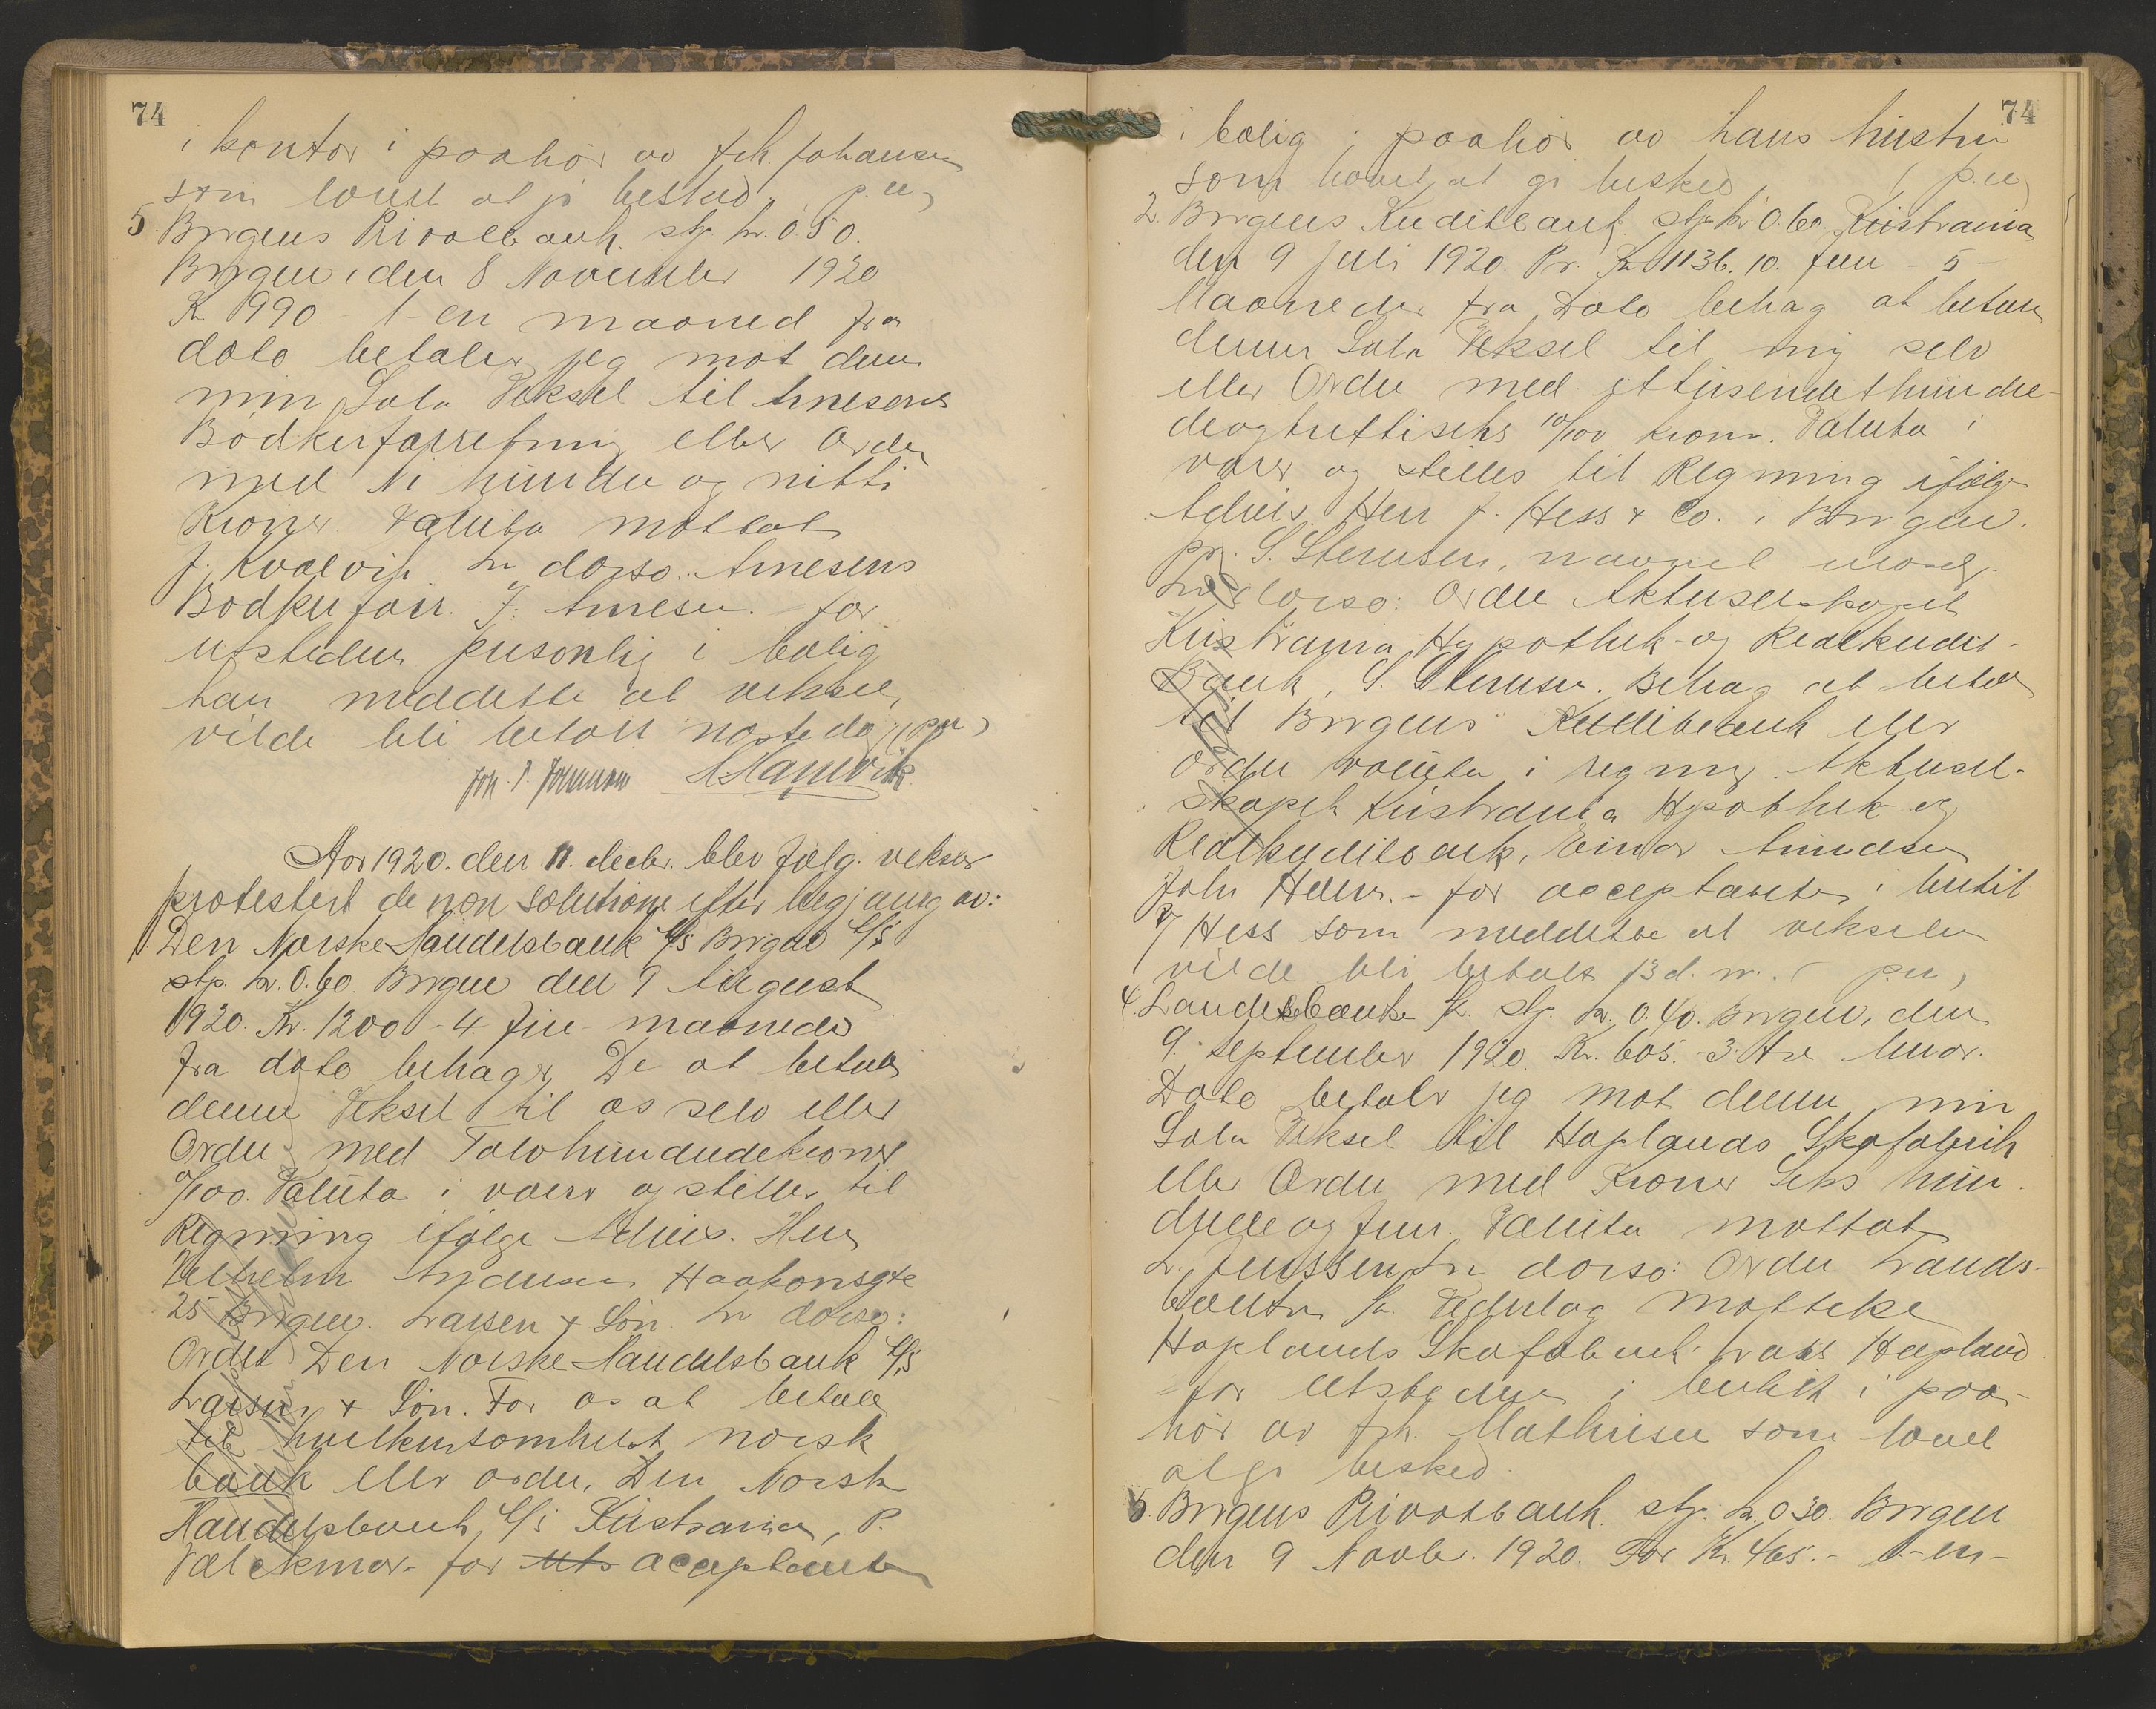 74
i kontor i paahör av frk. Johansen
som lovet at gi besked. p.u)
5. Bergens Privatbank. stp. kr. 0.50.
Bergen, den 8 November 1920
Kr. 990. - 1 - en maaned fra
dato betaler jeg mot denne
min Sola Veksel til Arnesens
Bödkerforretning eller Ordre
med Ni hundre og nitti
Kroner. Valuta mottat
J. Kvalvik. In dorso: Arnesens
Bödkerforr. J. Arnesen. - for
utstederen personlig i bolig
han meddelte at vekselen
vilde bli betalt næste dag. (p.u)
Joh. P. Johnsen
Aar 1920. den 11. decbr. blev fölg. veksler
protestert de non solutione efter begjæring av:
1 Den Norske Handelsbank A/S Bergen A/S
stp. kr. 0.60. Bergen den 9 August
1920. Kr. 1200 - 4 Fire maaneder
fra dato behager De at betale
denne Veksel til os selv eller
Ordre med Tolvhundredekroner
0/100. Valuta i varer og stilles til
Regning ifölge Advis. Herr
Vilhelm Andersen Haakonsgt
25 Bergen. Larsen & Sön. In dorso:
Ordre Den Norske Handelsbank A/S
Larsen & Sön. For os at betale
til hvilkensomhelst norsk
bank eller ordre, Den Norske
Handelsbank A/S Kristiania, P.
Valckmar - for Uts acceptanten
74
i bolig i paahör av hans hustru
som lovet at gi besked, ( p.u)
2. Bergens Kreditbank. stp. kr. 0.60. Kristiania
den 9 Juli 1920. Pr. Kr. 1136.10. Fem - 5 -
Maaneder fra Dato behag at betale
denne Sola Veksel til mig selv
eller Ordre med ettusendethundre-
deogtrettiseks 10/100 kroner. Valuta i
varer og stilles til Regning ifölge
Advis. Herr J. Hess & Co. i Bergen.
pr. S. Stensen, navnet
In dorso: Ordre Aktieselskapet
Kristiania Hypothek- og Realkredit-
Bank, S. Stensen. Behag at betale
til Bergens Kreditbank eller
ordre valuta i regning. Aktiesel-
skapet Kristiania Hypothek- og
Realkreditbank, Einar Amundsen
John - for acceptanten i butik
J Hess som meddelte at vekselen
vilde bli betalt 13 d. m. ( p.u)
4. Landsbanken stp. kr. 0.40. Bergen, den
9. September 1920. Kr. 605. - 3. tre
Dato betaler jeg mot denne min
Sola Veksel til Hoplands Skofabrik
eller Ordre med Kroner Seks hun-
drede og fem. Valuta mottat
L. Jenssen. In dorso: Ordre Lands-
banken mottat
Hoplands Skofabrik Lars Hopland
- for Utstederen i butik i paa-
hör av frk. Mathiesen som lovet
at gi besked.
5. Bergens Privatbank. stp. kr. 0.30. Bergen
den 9 Novbr. 1920. For Kr. 465. - 1 - en -